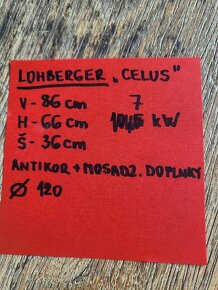 LOHBERGER „CELUS"
V - 86 cm 7
H - 66 cm kW
Š - 36 cm
ANTIKOR + MOSADZ. DOPLNKY
Ø 120